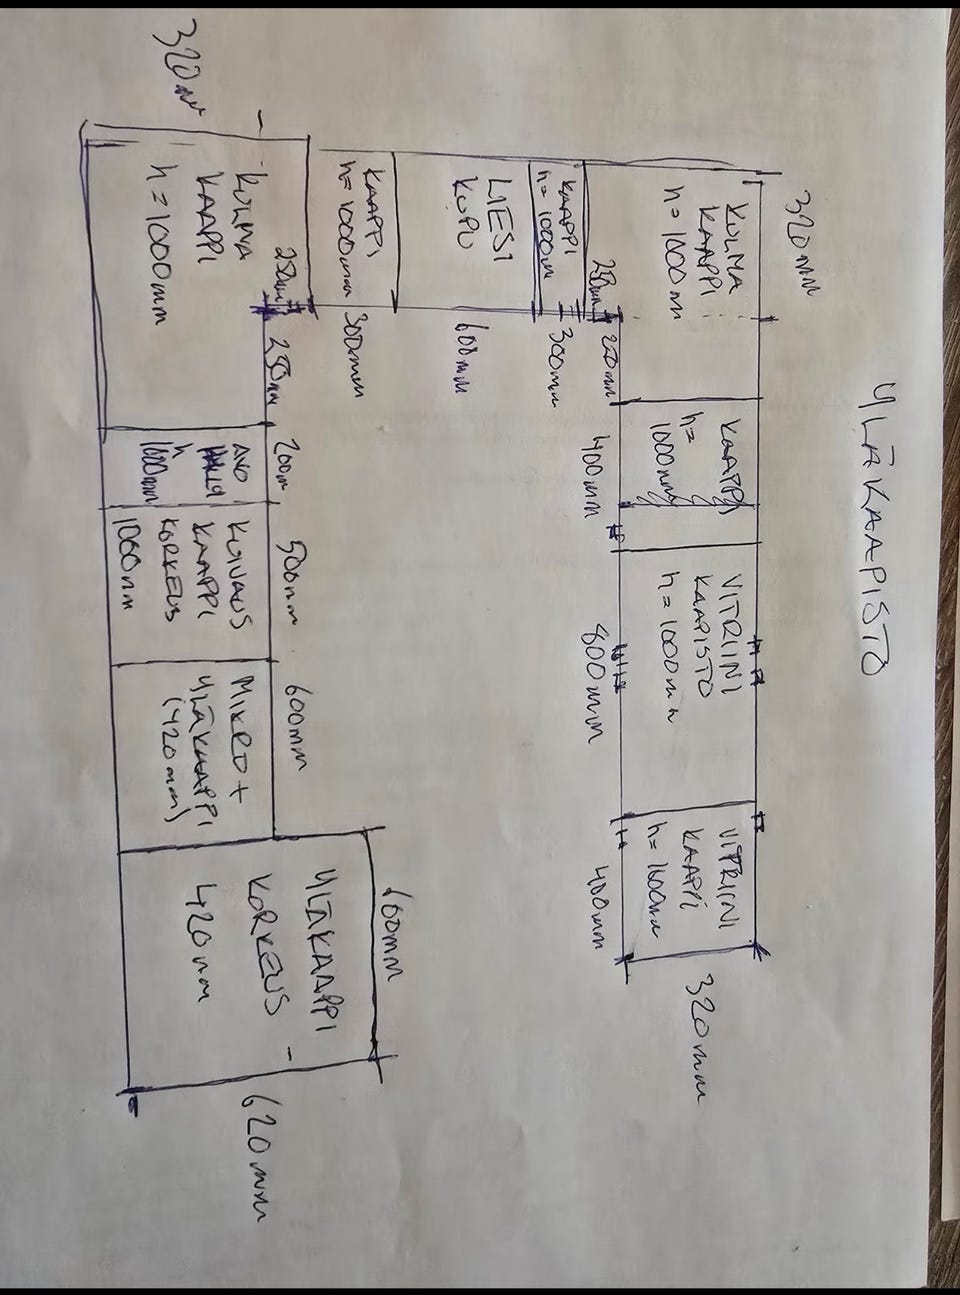 YLÄKAAPISTO
320mm
KULMA
KAAPPI
h=1000m
KAAPPI
h=
1000mm
400mm
VITRIINI
KAAPISTO
h=1000mm
800mm
VITRIINI
KAAPPI
h=1000m
400mm
320mm
KAAPPI
h=1000m
300mm
LIESI
KUPU
600mm
KAAPPI
h=1000mm
300mm
320m
KULMA
KAAPPI
h=1000mm
200m
AVO
HYLLY
h
1000mm
500mm
KUIVAUS
KAAPPI
KORKEUS
1000mm
600mm
MIKRO+
YLÄKAAPPI
(420mm)
600mm
YLÄKAAPPI
KORKEUS
420mm
620mm